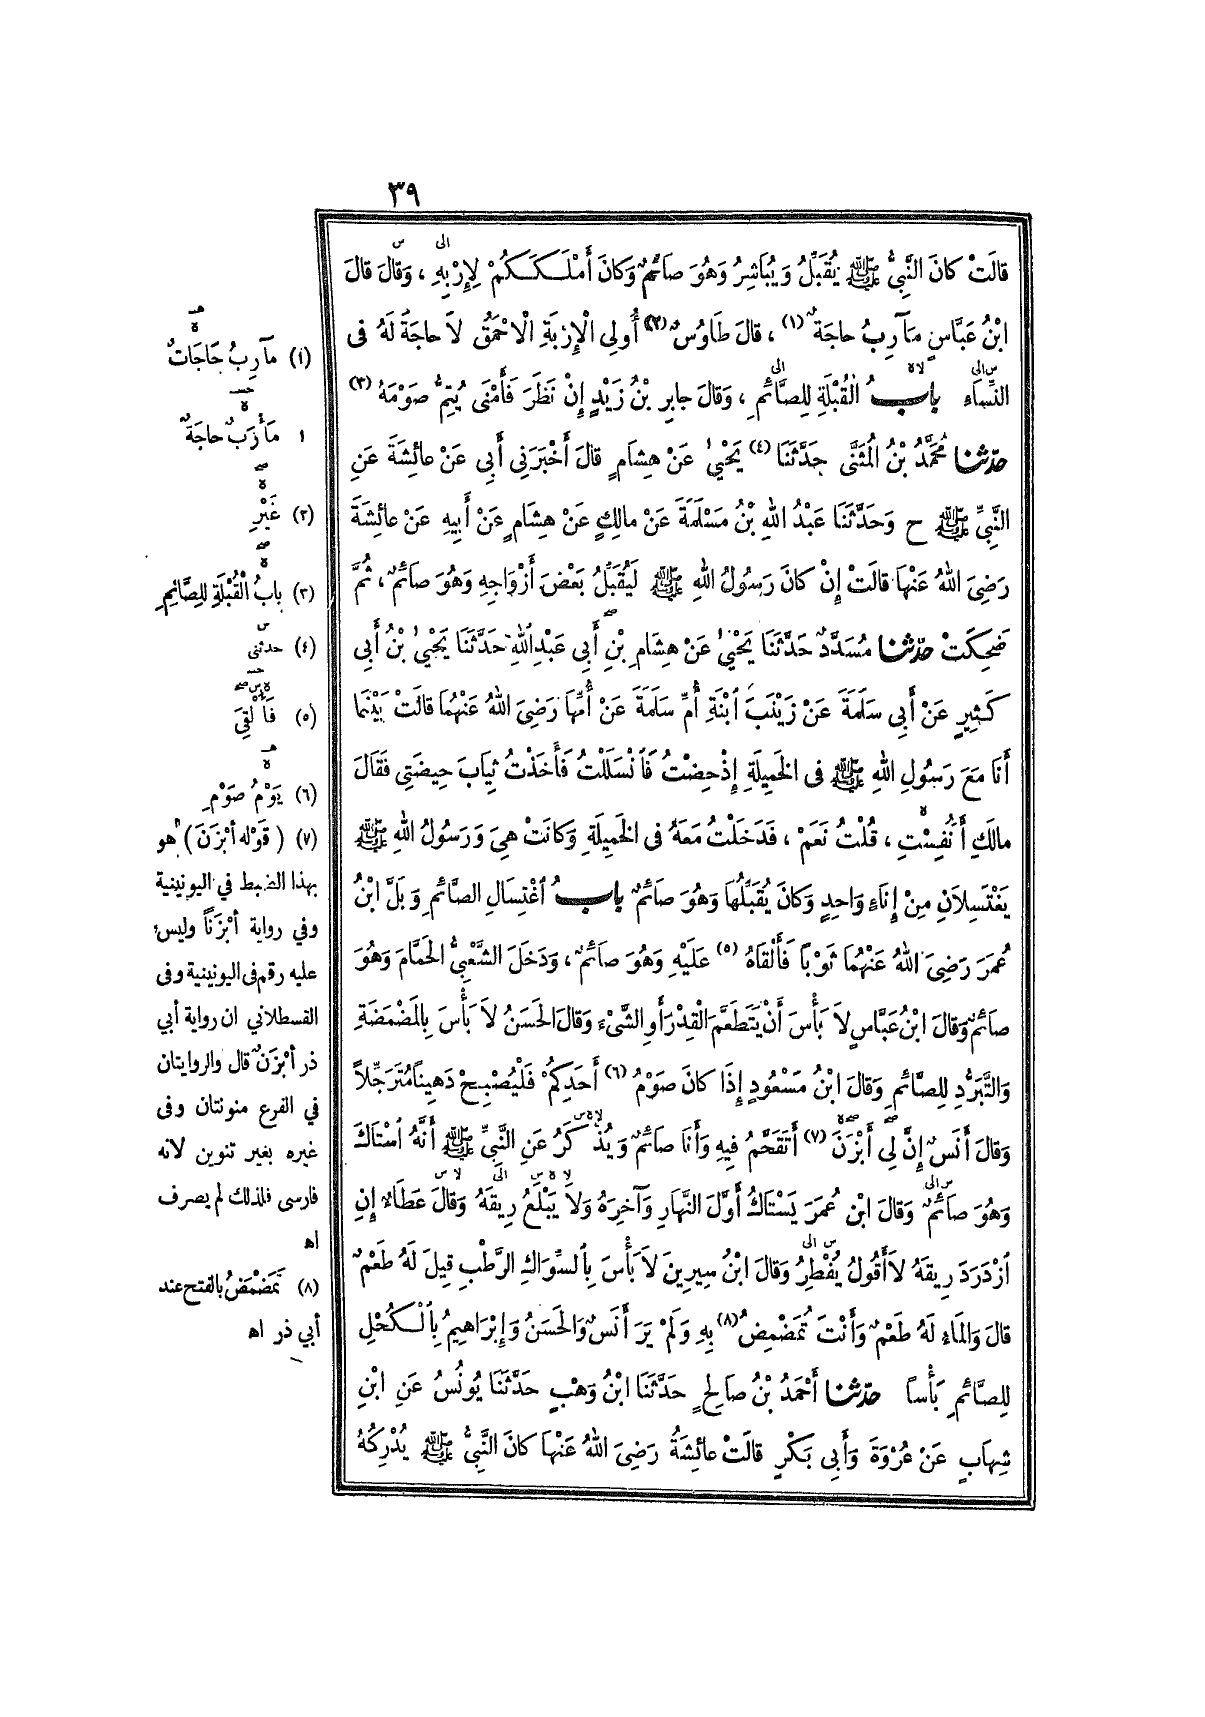 ٣٩
قالَتْ كانَ النَّبِيُّ ﷺ يُقَبِّلُ وَيُبَاشِرُ وَهُوَ صائمٌ وَكانَ أَمْلَكَكُمْ لِإِرْبِهِ ، وَقالَ قالَ
ابْنُ عَبَّاسٍ مَآرِبُ حاجَةٌ (١) ، قالَ طَاوُسٌ (٢) أُولِي الْإِرْبَةِ الْاحْمَقُ لاَ حاجَةَ لَهُ فى
النِّسَاءِ بابُ الْقُبْلَةِ لِلصَّائمِ ، وَقالَ جابِر بْنُ زَيْدٍ إِنْ نَظَرَ فَأَمْنَى يُتِمُّ صَوْمَهُ (٣)
حدّثنا مُحَمَّدُ بْنُ الْمُثَنَّى حَدَّثَنَا (٤) يَحْيىٰ عَنْ هِشَامٍ قالَ أَخْبَرَنِي أَبِي عَنْ عائشَةَ عَنِ
النَّبِيِّ ﷺ ح وَحَدَّثَنَا عَبْدُ اللهِ بْنُ مَسْلَمَةَ عَنْ مالِكٍ عَنْ هِشَامٍ عَنْ أَبِيهِ عَنْ عائشَةَ
رَضِىَ اللهُ عَنْهَا قالَتْ إِنْ كانَ رَسُولُ اللهِ ﷺ لَيُقَبِّلُ بَعْضَ أَزْوَاجِهِ وَهُوَ صائمٌ ، ثُمَّ
ضَحِكَتْ حدّثنا مُسَدَّدٌ حَدَّثَنَا يَحْيىٰ عَنْ هِشَامِ بْنِ أَبِي عَبْدِ اللهِ حَدَّثَنَا يَحْيىٰ بْنُ أَبِي
كَثِيرٍ عَنْ أَبِي سَلَمَةَ عَنْ زَيْنَبَ ٱبْنَةِ أُمِّ سَلَمَةَ عَنْ أُمِّهَا رَضِىَ اللهُ عَنْهُمَا قالَتْ بَيْنَمَا
أَنَا مَعَ رَسُولِ اللهِ ﷺ فى الخَمِيلَةِ إِذْ حِضْتُ فَٱنْسَلَلْتُ فَأَخَذْتُ ثِيَابَ حِيضَتِى فَقَالَ
مالَكِ أَنُفِسْتِ ، قُلْتُ نَعَمْ ، فَدَخَلْتُ مَعَهُ فى الخَمِيلَةِ وَكانَتْ هِىَ وَرَسُولُ اللهِ ﷺ
يَغْتَسِلاَنِ مِنْ إِنَاءٍ وَاحِدٍ وَكانَ يُقَبِّلُهَا وَهُوَ صَائمٌ بابُ ٱغْتِسَالِ الصَّائمِ وَبَلَّ ابْنُ
عُمَرَ رَضِىَ اللهُ عَنْهُمَا ثَوْبًا فَأَلْقَاهُ (٥) عَلَيْهِ وَهُوَ صائمٌ ، وَدَخَلَ الشَّعْبِيُّ الحَمَّامَ وَهُوَ
صائمٌ وَقالَ ابْنُ عَبَّاسٍ لاَ بَأْسَ أَنْ يَتَطَعَّمَ الْقِدْرَ أَوِ الشَّىْءَ وَقالَ الحَسَنُ لاَ بَأْسَ بِالمَضْمَضَةِ
وَالتَّبَرُّدِ لِلصَّائمِ وَقالَ ابْنُ مَسْعُودٍ إِذَا كانَ صَوْمُ (٦) أَحَدِكُمْ فَلْيُصْبِحْ دَهِينًا مُتَرَجِّلاً
وَقالَ أَنَسٌ إِنَّ لِي أَبْزَنَ (٧) أَتَقَحَّمُ فِيهِ وَأَنَا صائمٌ وَيُذْكَرُ عَنِ النَّبِيِّ ﷺ أَنَّهُ ٱسْتَاكَ
وَهُوَ صَائمٌ وَقالَ ابْن عُمَرَ يَسْتَاكُ أَوَّلَ النَّهَارِ وَآخِرَهُ وَلاَ يَبْلَعُ رِيقَهُ وَقالَ عَطَاءٌ إِنِ
ٱزْدَرَدَ رِيقَهُ لاَ أَقُولُ يُفْطِرُ وَقالَ ابْنُ سِيرِينَ لاَ بَأْسَ بِٱلسِّوَاكِ الرَّطْبِ قِيلَ لَهُ طَعْمٌ
قالَ وَالمَاءُ لَهُ طَعْمٌ وَأَنْتَ تُمَضْمِضُ (٨) بِهِ وَلَمْ يَرَ أَنَسٌ وَالحَسَنُ وَإِبْرَاهِيمُ بِٱلْكُحْلِ
لِلصَّائمِ بَأْساً حدّثنا أَحْمَدُ بْنُ صَالِحٍ حَدَّثَنَا ابْنُ وَهْبٍ حَدَّثَنَا يُونُسُ عَنِ ابْنِ
شِهَابٍ عَنْ عُرْوَةَ وَأَبِي بَكْرٍ قالَتْ عائشَةُ رَضِىَ اللهُ عَنْهَا كانَ النَّبِيُّ ﷺ يُدْرِكُهُ
(١) مآرِبُ حَاجَاتٌ
١ مَأْرَبٌ حاجَةٌ
(٢) غَيْرِ
(٣) بابُ الْقُبْلَةِ لِلصَّائِمِ
(٤) حدثنى
(٥) فَأُلْقِىَ
(٦) يَوْمُ صَوْمِ
(٧) (قَوْله أبْزَنَ) هو
بهذا الضبط في اليونينية
وفي رواية أبْزَنًا وليس
عليه رقم فى اليونينية وفى
القسطلاني ان رواية أبي
ذر أبْزَنٌ قال والروايتان
في الفرع منونتان وفى
غيره بغير تنوين لانه
فارسى فلذلك لم يصرف
اه
(٨) تَمَضْمَضُ بالفتح عند
أبي ذر اه